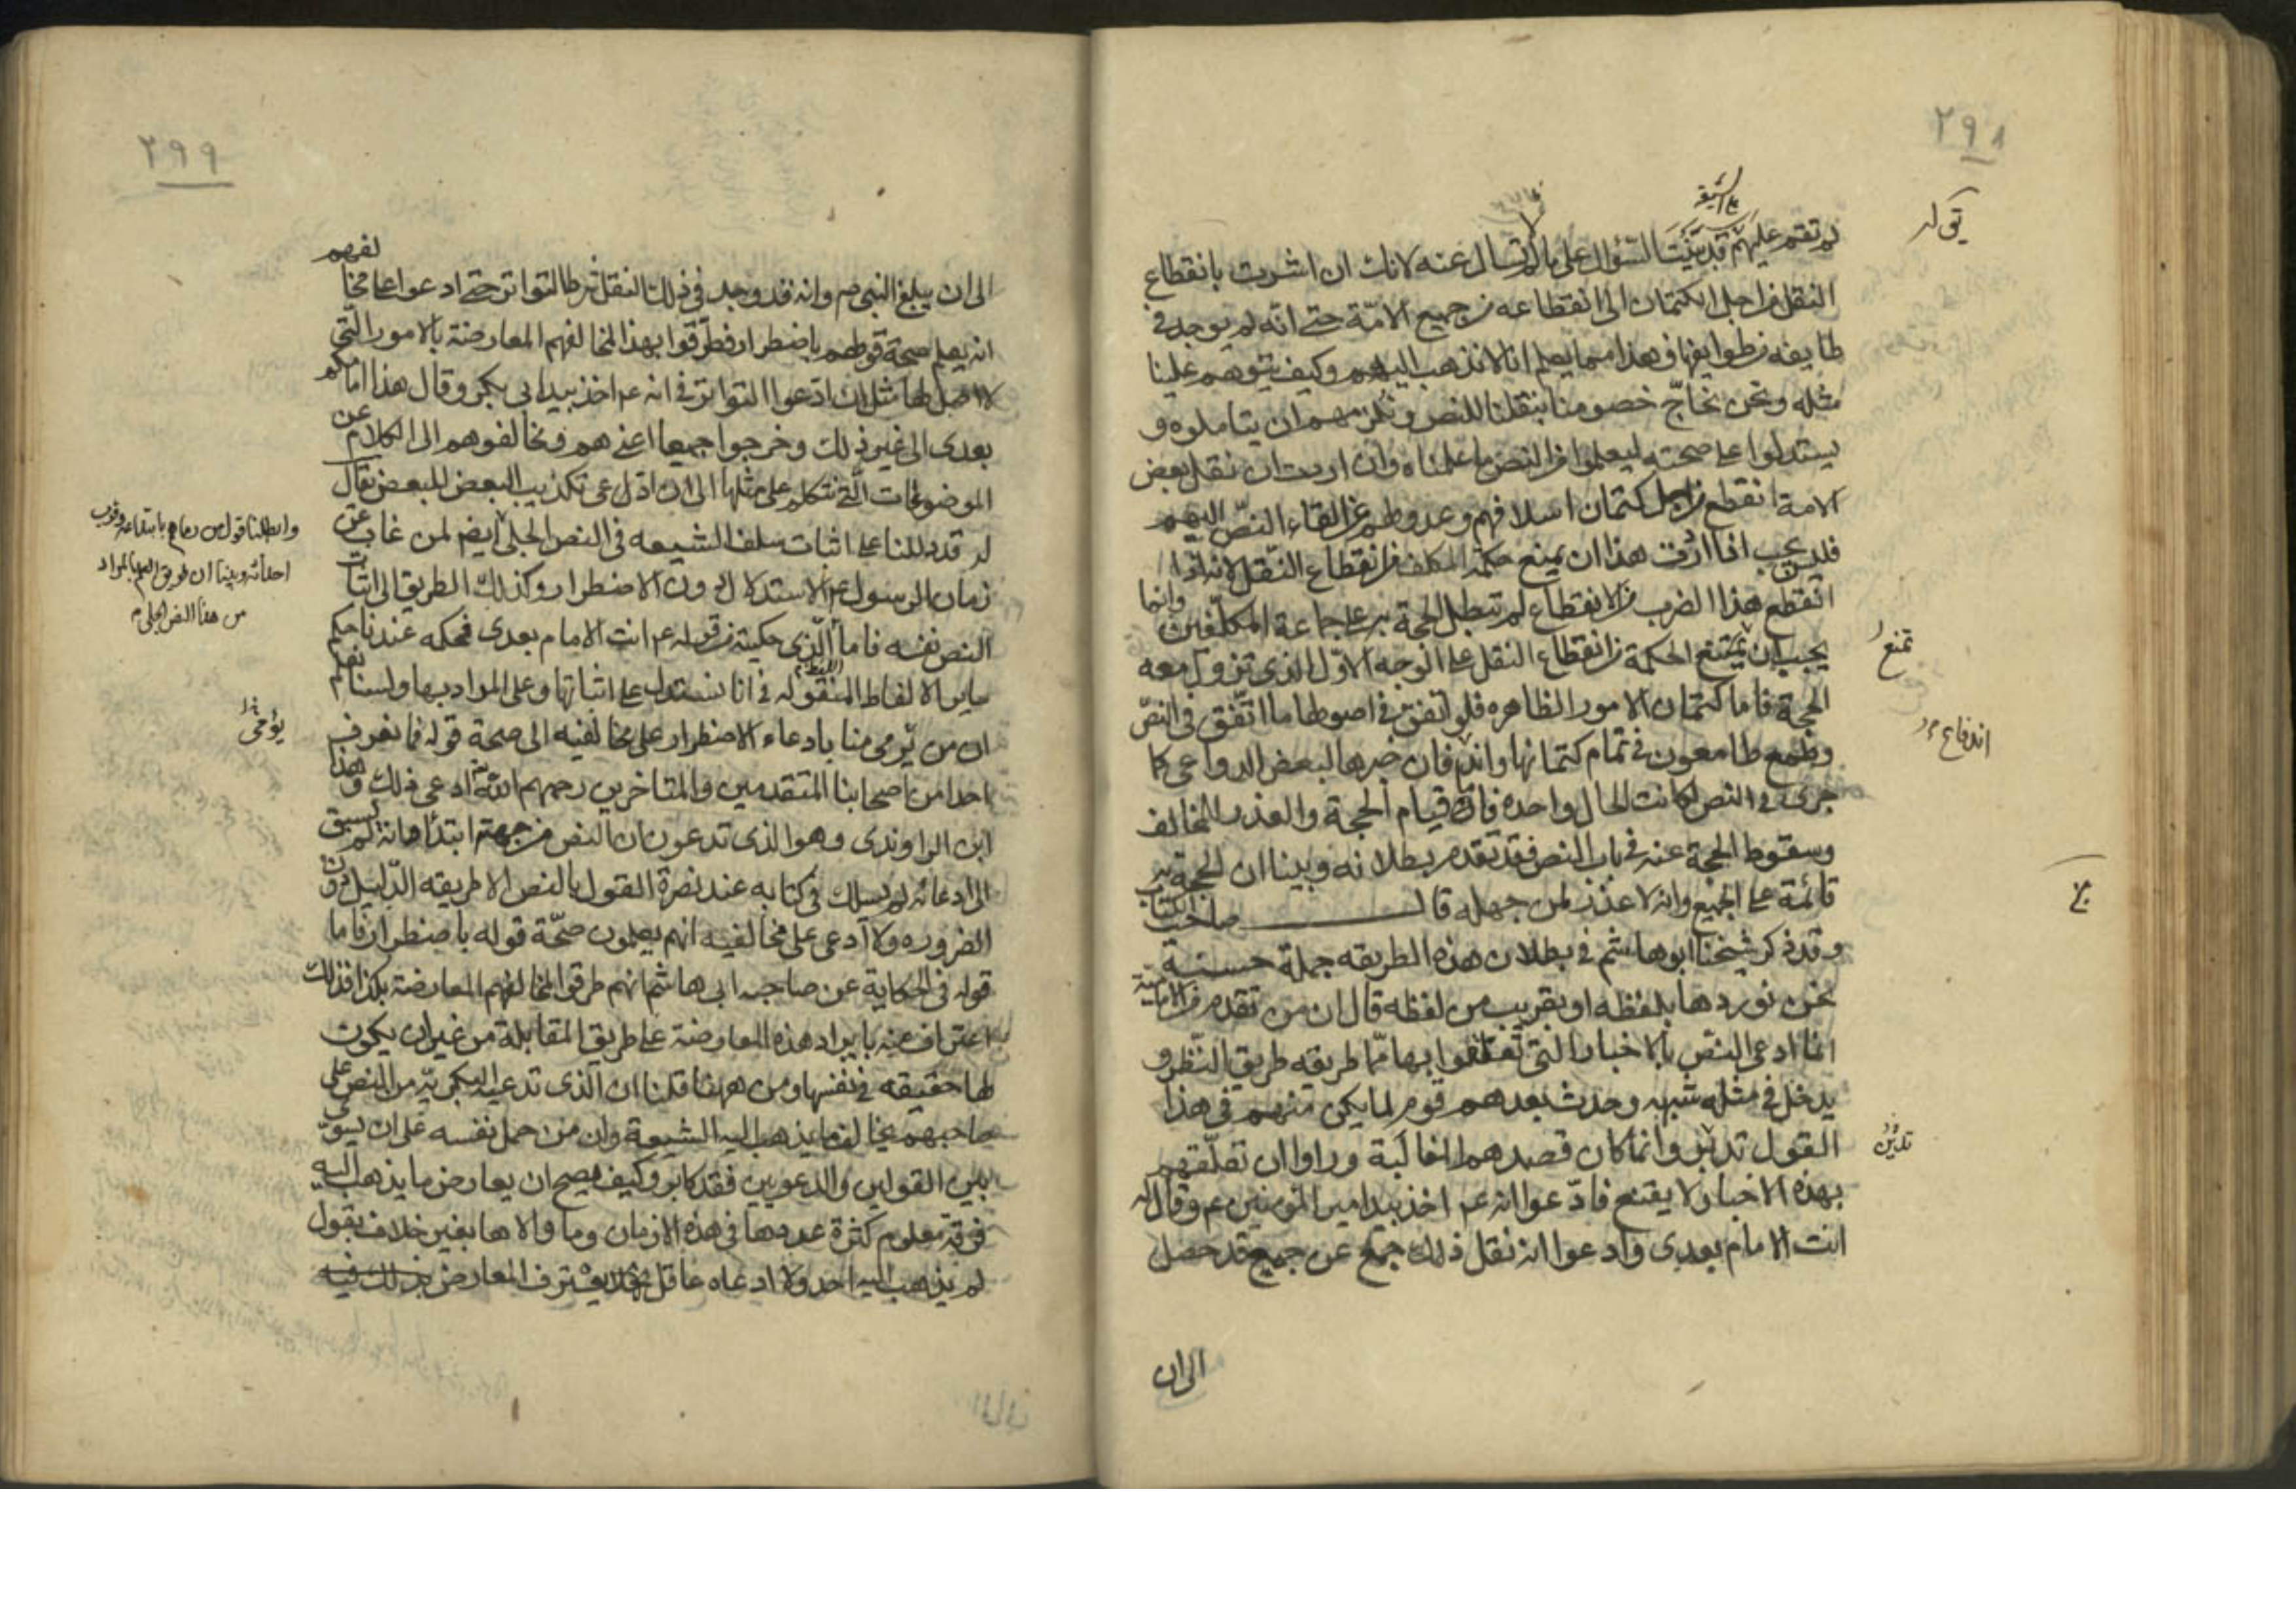 ٢٩٨
لم تقم عليهم قد بنيت السؤال على ما لم تسال عنه لانك ان اشرت بانقطاع
النقل من اجل الكتمان الى انقطاعه من جميع الامّة حتى انّه لم يوجد في
طايفه من طوايفها فهذا مما يعلم انا لا نذهب اليه وكيف يتوهم علينا
مثله ونحن نحاجّ خصومنا بنقلنا للنص ونلزمهم ان يتاملوه و
يستدلوا على صحته ليعلموا من النص ما علمناه وان اردت ان نقل بعض
الامة انقطع من اجل كتمان اسلافهم وعدولهم عن القاء النصّ اليهم
فليس يجب اذا اردت هذا ان يمنع حكمة المكلف من انقطاع النّقل لانه اذا
انقطع هذا الضرب من الانقطاع لم تبطل الحجة به على جماعة المكلّفين وانما
يجب ان يمتنع الحكمة من انقطاع النقل على الوجه الاوّل الذى تزول معه
الحجة فاما كتمان الامور الظاهره فلو اتفق في اصولها ما اتّفق في النصّ
وطمع طامعون في تمام كتمانها واندفان خبرها لبعض الدواعى كما
جرى في النص لكانت الحال واحده فاما قيام الحجة والعذر للمخالف
وسقوط الحجة عنه في باب النص فقد تقدم بطلانه وبينا ان الحجة به
قائمة على الجميع وانه لا عذر لمن جهله قال صاحب الكتاب
وقد ذكر شيخنا ابو هاشم في بطلان هذه الطريقه جملة حسنة
نحن نوردها بلفظه او بقريب من لفظه قال ان من تقدم من الاماميّة
انما ادعى النص بالاخبار التي تعلقوا بها ممّا طريقه طريق النّظر و
يدخل في مثله شبهه وحدث بعدهم قوم لما يكن منهم في هذا
القول تدين وانما كان قصدهم المغالبة وراوا ان تعلّقهم
بهذه الاخبار لا يقنع فادّعوا انه عم اخذ بيد امير المؤمنين عم وقال له
انت الامام بعدى وادعوا انه نقل ذلك جمع عن جميع قد حصل
الى ان
تمنع
اندفاع
تدين
٢٩٩
الى ان يبلغ النبى صم وانه قد وجد في ذلك النقل شرط التواتر حتى ادعوا على مخالفهم
انه يعلم صحة قولهم باضطرار فطرّقوا بهذا لمخالفهم المعارضة بالامور التّى
لا اصل لها مثل ان ادعوا التواتر في انه عم اخذ بيد ابى بكر وقال هذا امامكم
بعدى الى غير ذلك وخرجوا جميعا اعنى هم ومخالفوهم الى الكلام عن
الموضوعات الّتى نتكلم على مثلها الى ان ادل عى تكذيب البعض للبعض يقال
له قد دللنا على اثبات سلف الشيعه في النص الجلى ايضم لمن غاب عن
زمان الرسول عم الاستدلال دون الاضطرار وكذلك الطريق الى اثبات
النص نفسه فاما الّذى حكيته من قوله عم انت الامام بعدى فحكمه عندنا حكم
ساير الالفاظ المنقوله في انا نستدل على اثباتها وعلى المراد بها ولسنا نعلم
ان من يّومى منا بادعاء الاضطرار على مخالفيه الى صحة قوله فما نعرف
احدا من اصحابنا المتقدمين والمتاخرين رحمهم الله ادعى ذلك وهذا
ابن الراوندى وهو الذى تدعون ان النص من جهته ابتداؤه وانه لم يسبق
الى ادعائه لم يسلك في كتابه عند نصرة القول بالنص الا طريقه الدّليل دون
الضروره ولا ادعى على مخالفيه انهم يعلمون صحّة قوله باضطرار فاما
قوله في الحكاية عن صاحبه ابى هاشم انهم طرقوا لمخالفهم المعارضة بكذا فذلك
اعتراف منه بايراد هذه المعارضة على طريق المقابلة من غير ان يكون
لها حقيقه في نفسها ومن ههنا قلنا ان الّذى تدعيه البكريّه من النص على
صاحبهم يخالف ما يذهب اليه الشيعة وان من حمل نفسه على ان يسوّى
بين القولين والدعويين فقد كابر وكيف يصح ان يعارض ما يذهب اليه
فرقة معلوم كثرة عددها في هذه الازمان وما والاها بغير خلاف بقول
لم يذهب اليه احد ولا ادعاه عاقل
وابطلنا قول من رماهم بابتداعه وقرب
احداثه وبينا ان طريق العلم بالمراد
من هذا النص الجلى
يؤمى